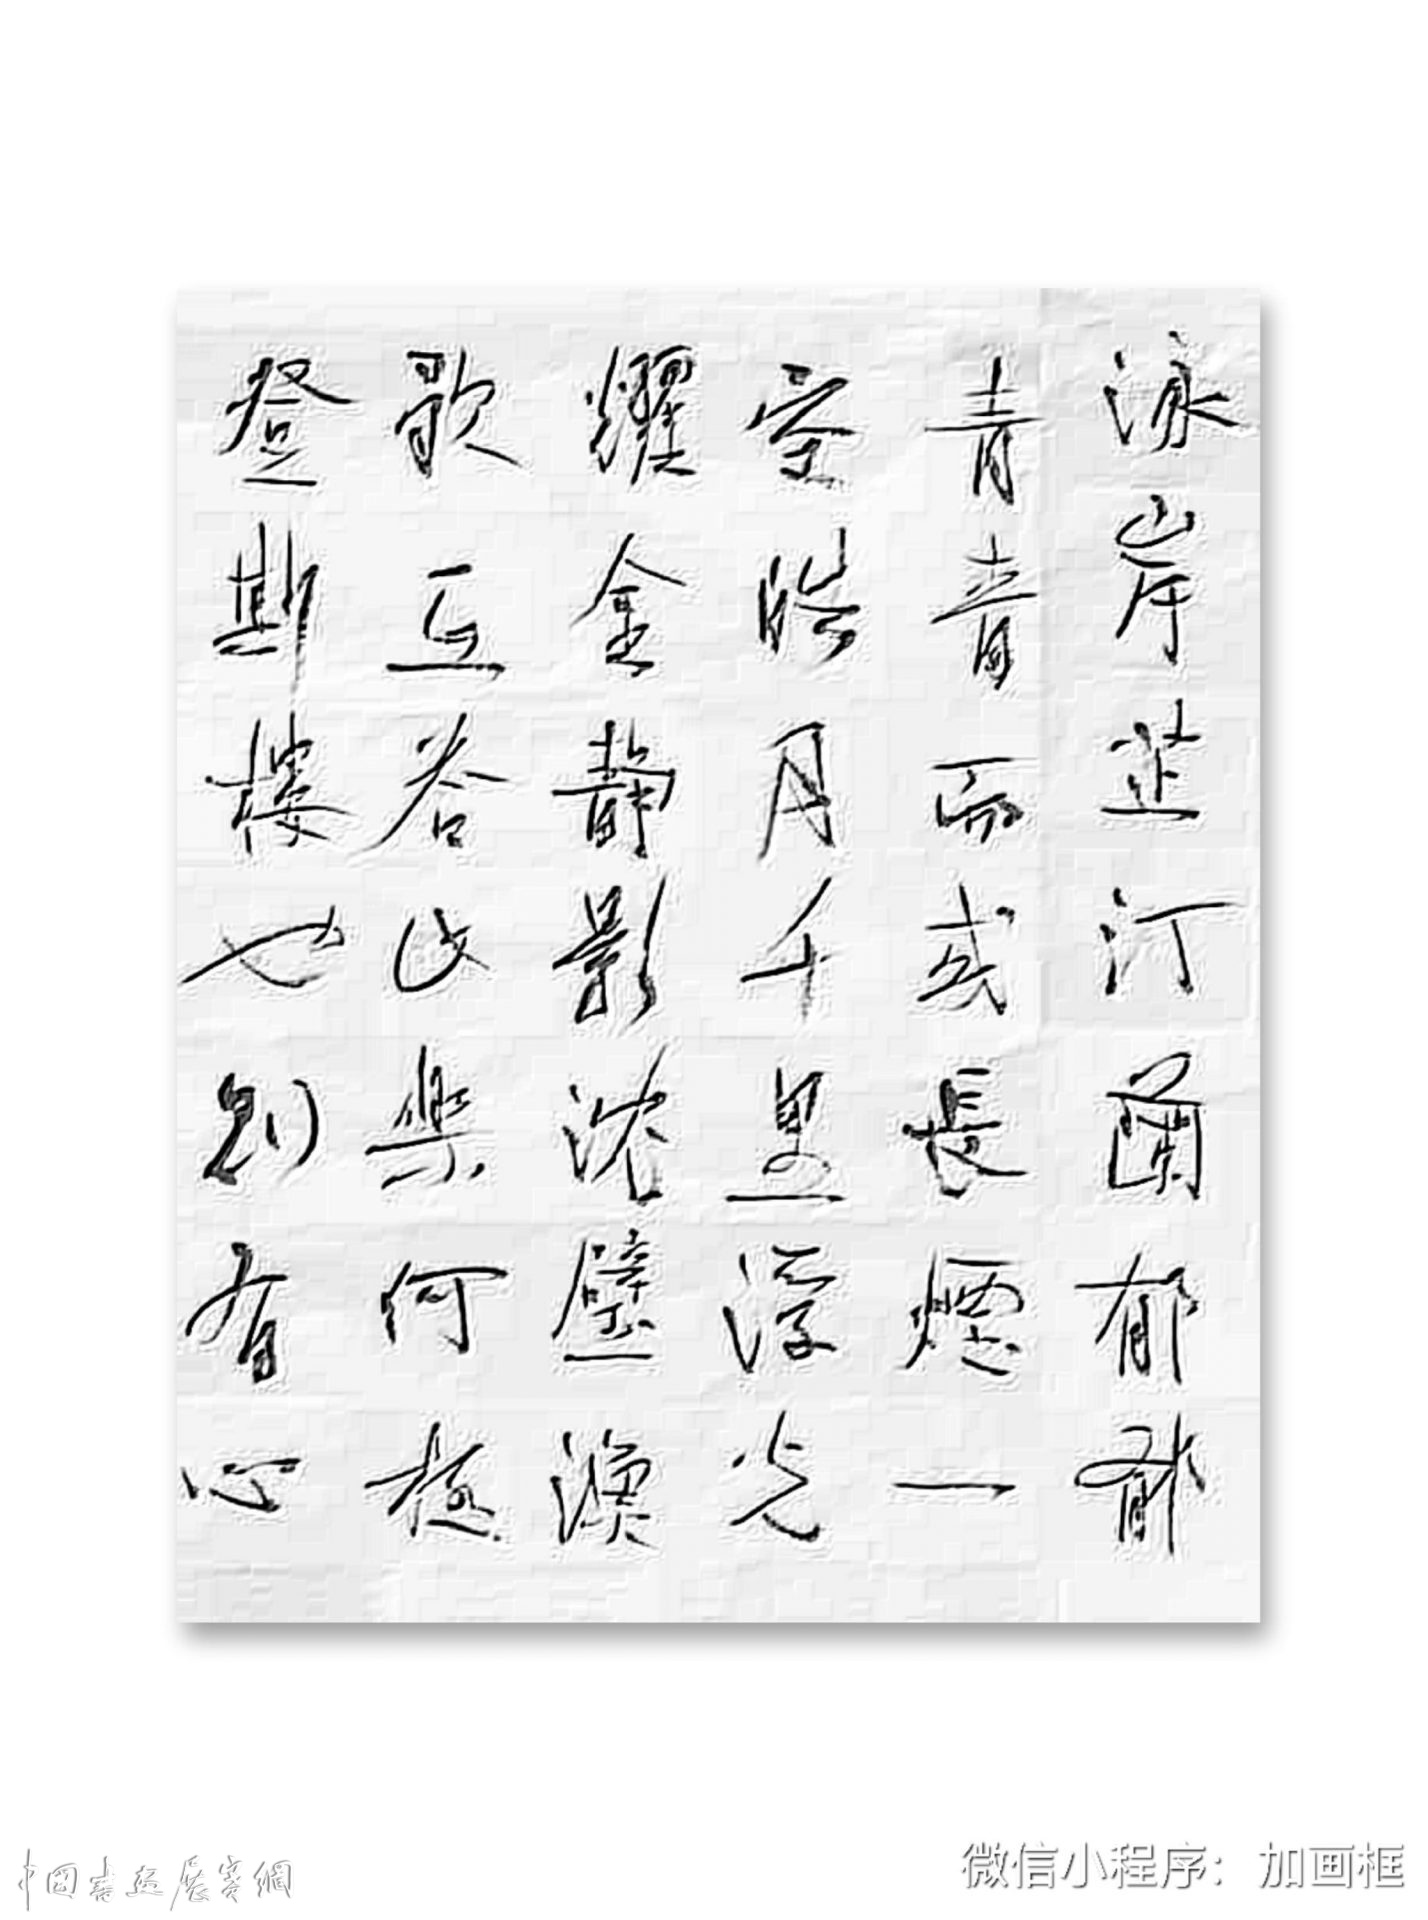 泳岸芷汀蘭郁郁
青青而或長煙一
空皓月千里浮光
耀金静影沈璧漁
歌互答此樂何極
登斯樓也則有心
中國書画展賽網
微信小程序：加画框